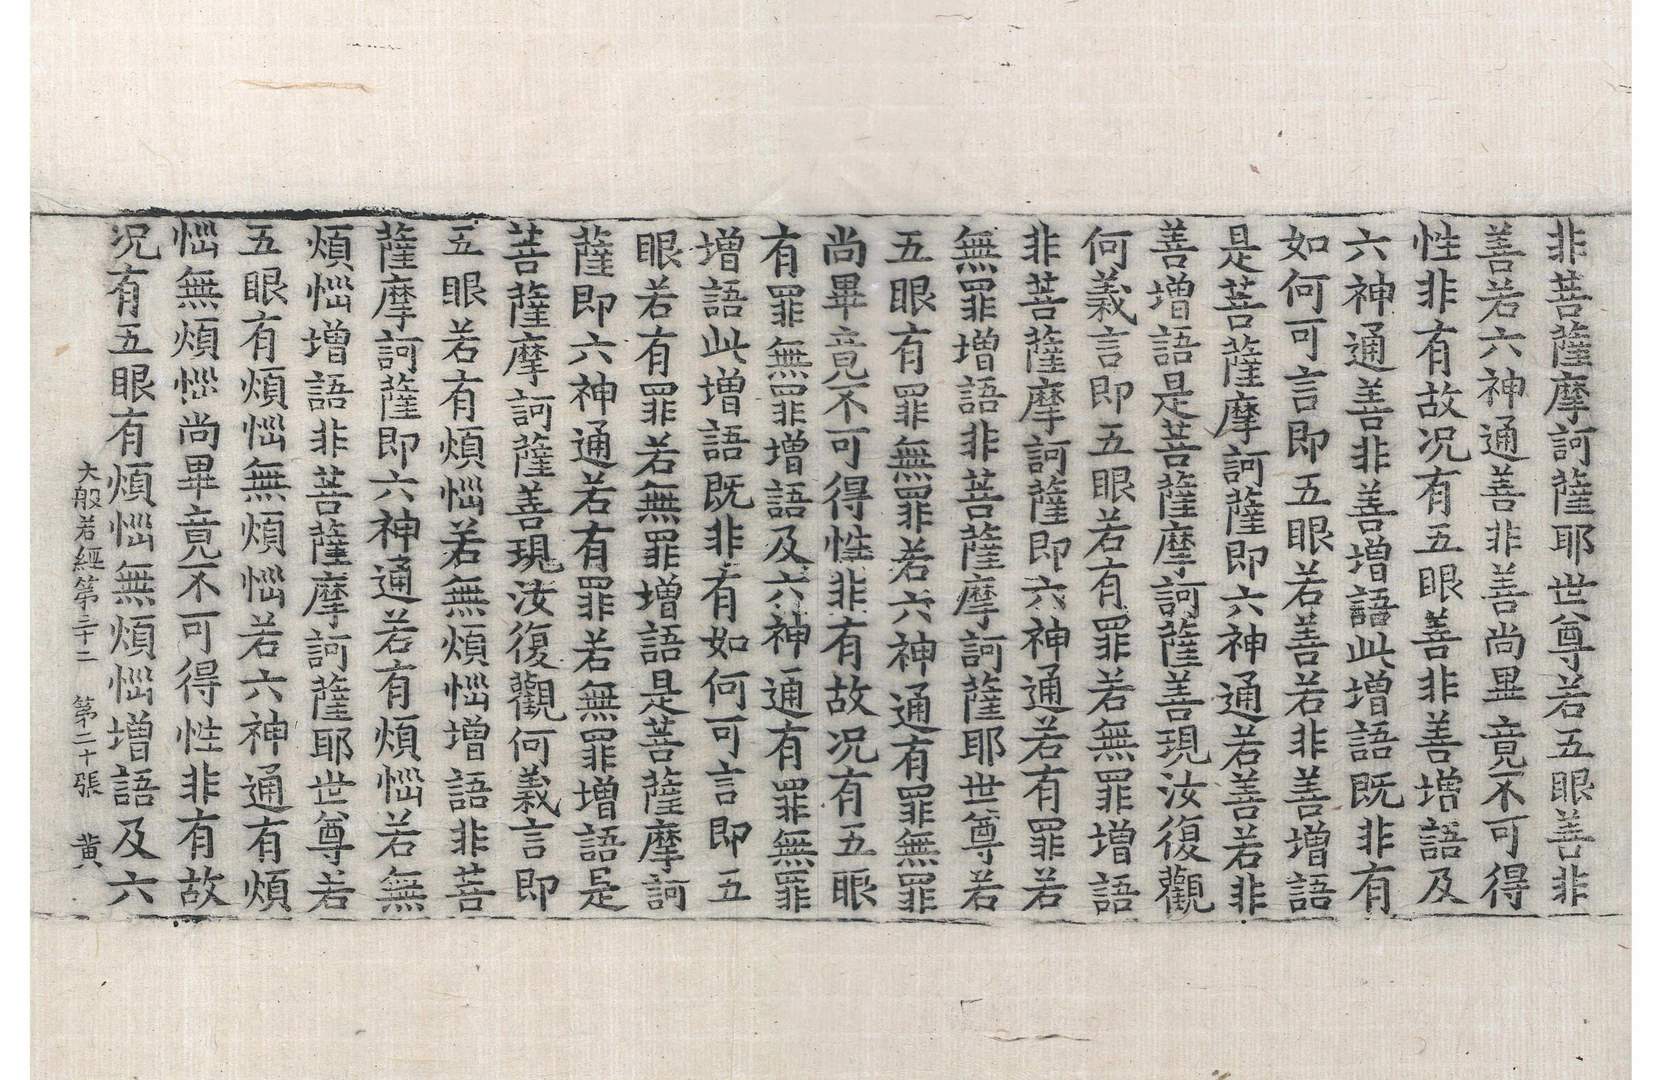 非菩薩摩訶薩耶世尊若五眼善非
善若六神通善非善尚畢竟不可得
性非有故况有五眼善非善增語及
六神通善非善增語此增語既非有
如何可言即五眼若善若非善增語
是菩薩摩訶薩即六神通若善若非
善增語是菩薩摩訶薩善現汝復觀
何義言即五眼若有罪若無罪增語
非菩薩摩訶薩即六神通若有罪若
無罪增語非菩薩摩訶薩耶世尊若
五眼有罪無罪若六神通有罪無罪
尚畢竟不可得性非有故况有五眼
有罪無罪增語及六神通有罪無罪
增語此增語既非有如何可言即五
眼若有罪若無罪增語是菩薩摩訶
薩即六神通若有罪若無罪增語是
菩薩摩訶薩善現汝復觀何義言即
五眼若有煩惱若無煩惱增語非菩
薩摩訶薩即六神通若有煩惱若無
煩惱增語非菩薩摩訶薩耶世尊若
五眼有煩惱無煩惱若六神通有煩
惱無煩惱尚畢竟不可得性非有故
况有五眼有煩惱無煩惱增語及六
大般若經第三十二 第二十張 黄